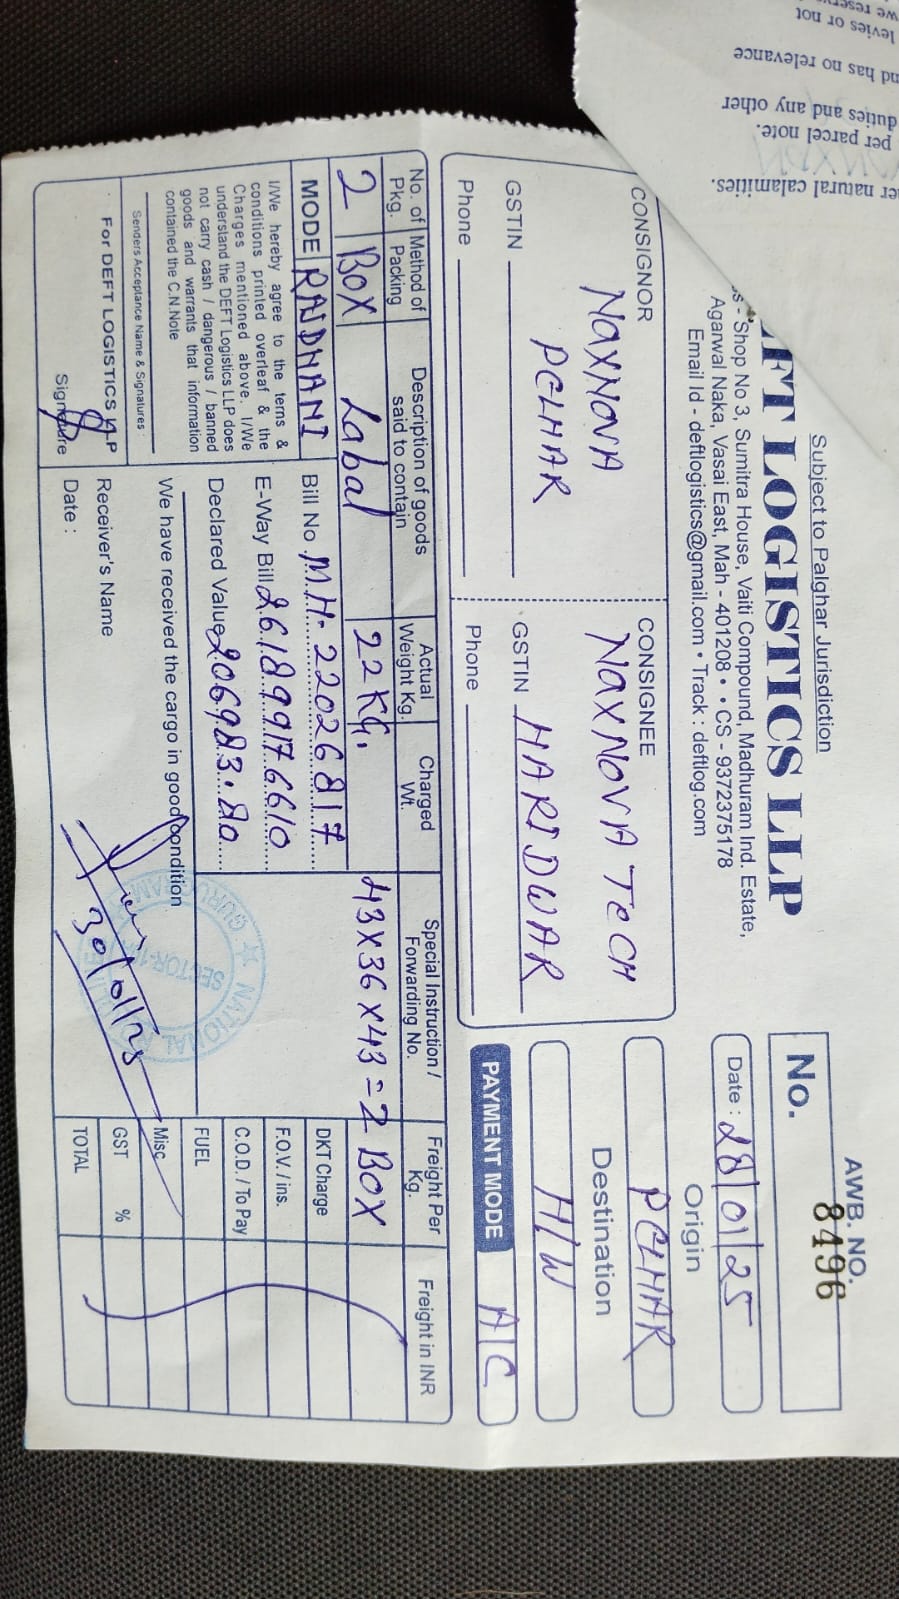 Subject to Palghar Jurisdiction
EFT LOGISTICS LLP
s - Shop No 3, Sumitra House, Vaiti Compound, Madhuram Ind. Estate,
Agarwal Naka, Vasai East, Mah - 401208 • • CS - 9372375178
Email Id - deftlogistics@gmail.com • Track : deftlog.com
AWB. NO.
No. 8496
Date : 28/01/25
Origin
PELHAR
Destination
H/W
PAYMENT MODE A/C
CONSIGNOR
NAXNOVA
PELHAR
GSTIN
Phone
CONSIGNEE
NAXNOVA TECH
HARIDWAR
GSTIN
Phone
No. of Pkg. Method of Packing Description of goods said to contain Actual Weight Kg. Charged Wt. Special Instruction / Forwarding No. Freight Per Kg. Freight in INR
2 BOX Labal 22 KG. 43X36X43=2 BOX
MODE RAJDHANI
Bill No. MH-22026817
E-Way Bill 261899176610
Declared Value 206983.80
DKT Charge
F.O.V. / ins.
C.O.D. / To Pay
FUEL
Misc
GST %
TOTAL
I/We hereby agree to the terns &
conditions printed overleaf & the
Charges mentioned above. I/We
understand the DEFT Logistics LLP does
not carry cash / dangerous / banned
goods and warrants that information
contained the C.N.Note
Senders Acceptance Name & Signatures :
For DEFT LOGISTICS LLP
Signature
We have received the cargo in good condition
Receiver's Name
Date :
30/01/25
NATIONAL
GURUGRAM
SECTOR-18
we reserve
levies or not
nd has no relevance
duties and any other
per parcel note.
er natural calamities.